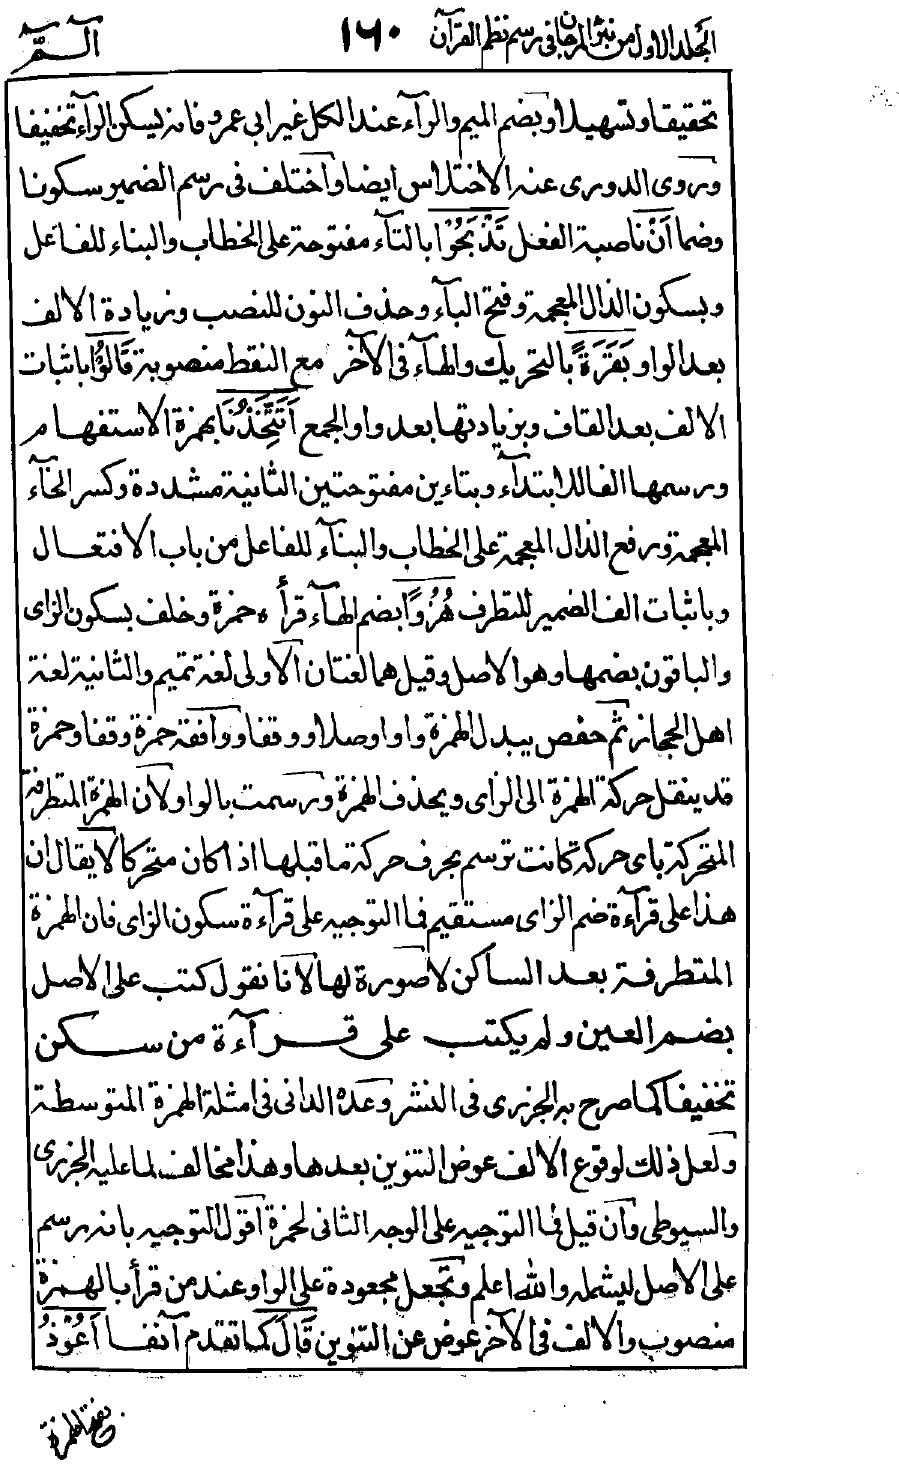 الجلد الاول من نثر المرجان فى رسم نظم القرآن ١٦٠ آلـــمّ
تحقيقا وتسهيلا او بضم الميم والرآء عند الكل غير ابى عمرو فانه يسكن الرآء تخفيفا
وروى الدورى عنه الاختلاس ايضا واختلف فى رسم الضمير سكونا
وضما اَنْ ناصبة الفعل تَذْبَحُوْا بالتآء مفتوحة على الخطاب والبناء للفاعل
وبسكون الذال المعجمة وفتح البآء وحذف النون للنصب وزيادة الالف
بعد الواو بَقَرَةً بالتحريك والهآء فى الآخر مع النقط منصوبة قَالُوْٓا باثبات
الالف بعد القاف وبزيادتها بعد واو الجمع اَتَتَّخِذُنَا بهمزة الاستفهام
ورسمها الفا للابتدآء وبتاءين مفتوحتين الثانية مشددة وكسر الخآء
المعجمة ورفع الذال المعجمة على الخطاب والبنآء للفاعل من باب الافتعال
وباثبات الف الضمير للتطرف هُزُوًا بضم الهآء قرأه حمزة وخلف بسكون الزاى
والباقون بضمها وهو الاصل وقيل هما لغتان الاولى لغة تميم والثانية لغة
اهل الحجاز ثم حفص يبدل الهمزة واوا وصلا ووقفا ووافقه حمزة وقفا وحمزة
قد ينقل حركة الهمزة الى الزاى ويحذف الهمزة ورسمت بالواو لان الهمزة المتطرفة
المتحركة باى حركة كانت ترسم بحرف حركة ما قبلها اذا كان متحركا لايقال ان
هذا على قرآءة ضم الزاى مستقيم فما التوجيه على قرآءة سكون الزاى فان الهمزة
المتطرفة بعد الساكن لاصورة لها لانا نقول كتب على الاصل
بضم العين ولم يكتب على قرآءة من سكن
تخفيفا كما صرح به الجزرى فى النشر وعده الدانى فى امثلة الهمزة المتوسطة
ولعل ذلك لوقوع الالف عوض التنوين بعدها وهذا مخالف لما عليه الجزرى
والسيوطى وان قيل فما التوجيه على الوجه الثانى لحمزة اقول التوجيه بانه رسم
على الاصل ليشمله والله اعلم وتجعل مجعودة على الواو عند من قرأ بالهمزة
منصوب والالف فى الآخر عوض عن التنوين قَالَ كما تقدم آنفا اَعُوْذُ
بفتح الهمزة